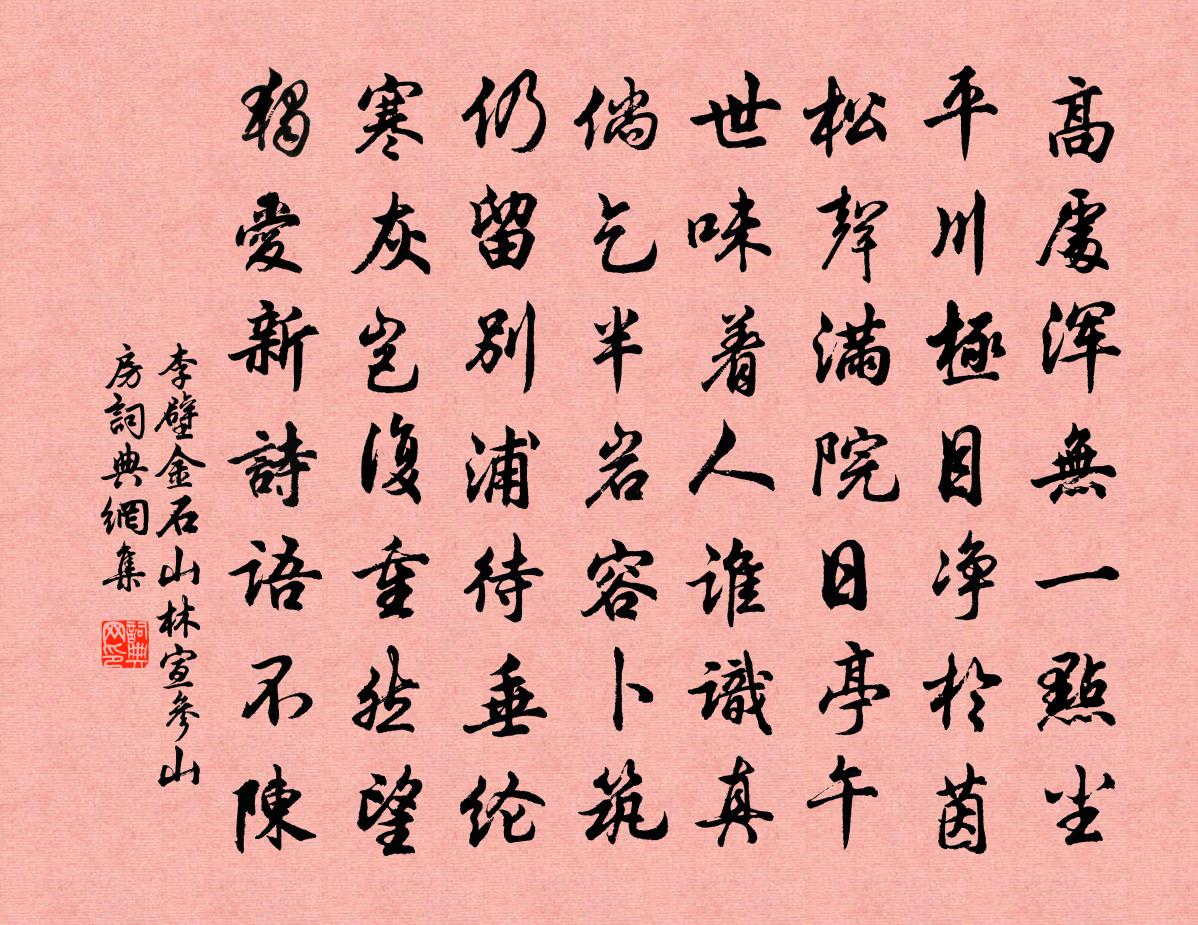 高處渾無一點尘
平川極目净於茵
松聲滿院日亭午
世味着人誰識真
倘乞半岩容卜筑
仍留别浦待垂纶
寒灰岂復重然望
獨愛新詩語不陳
李壁金石山林宣參山
房詞典網集
詞典网印